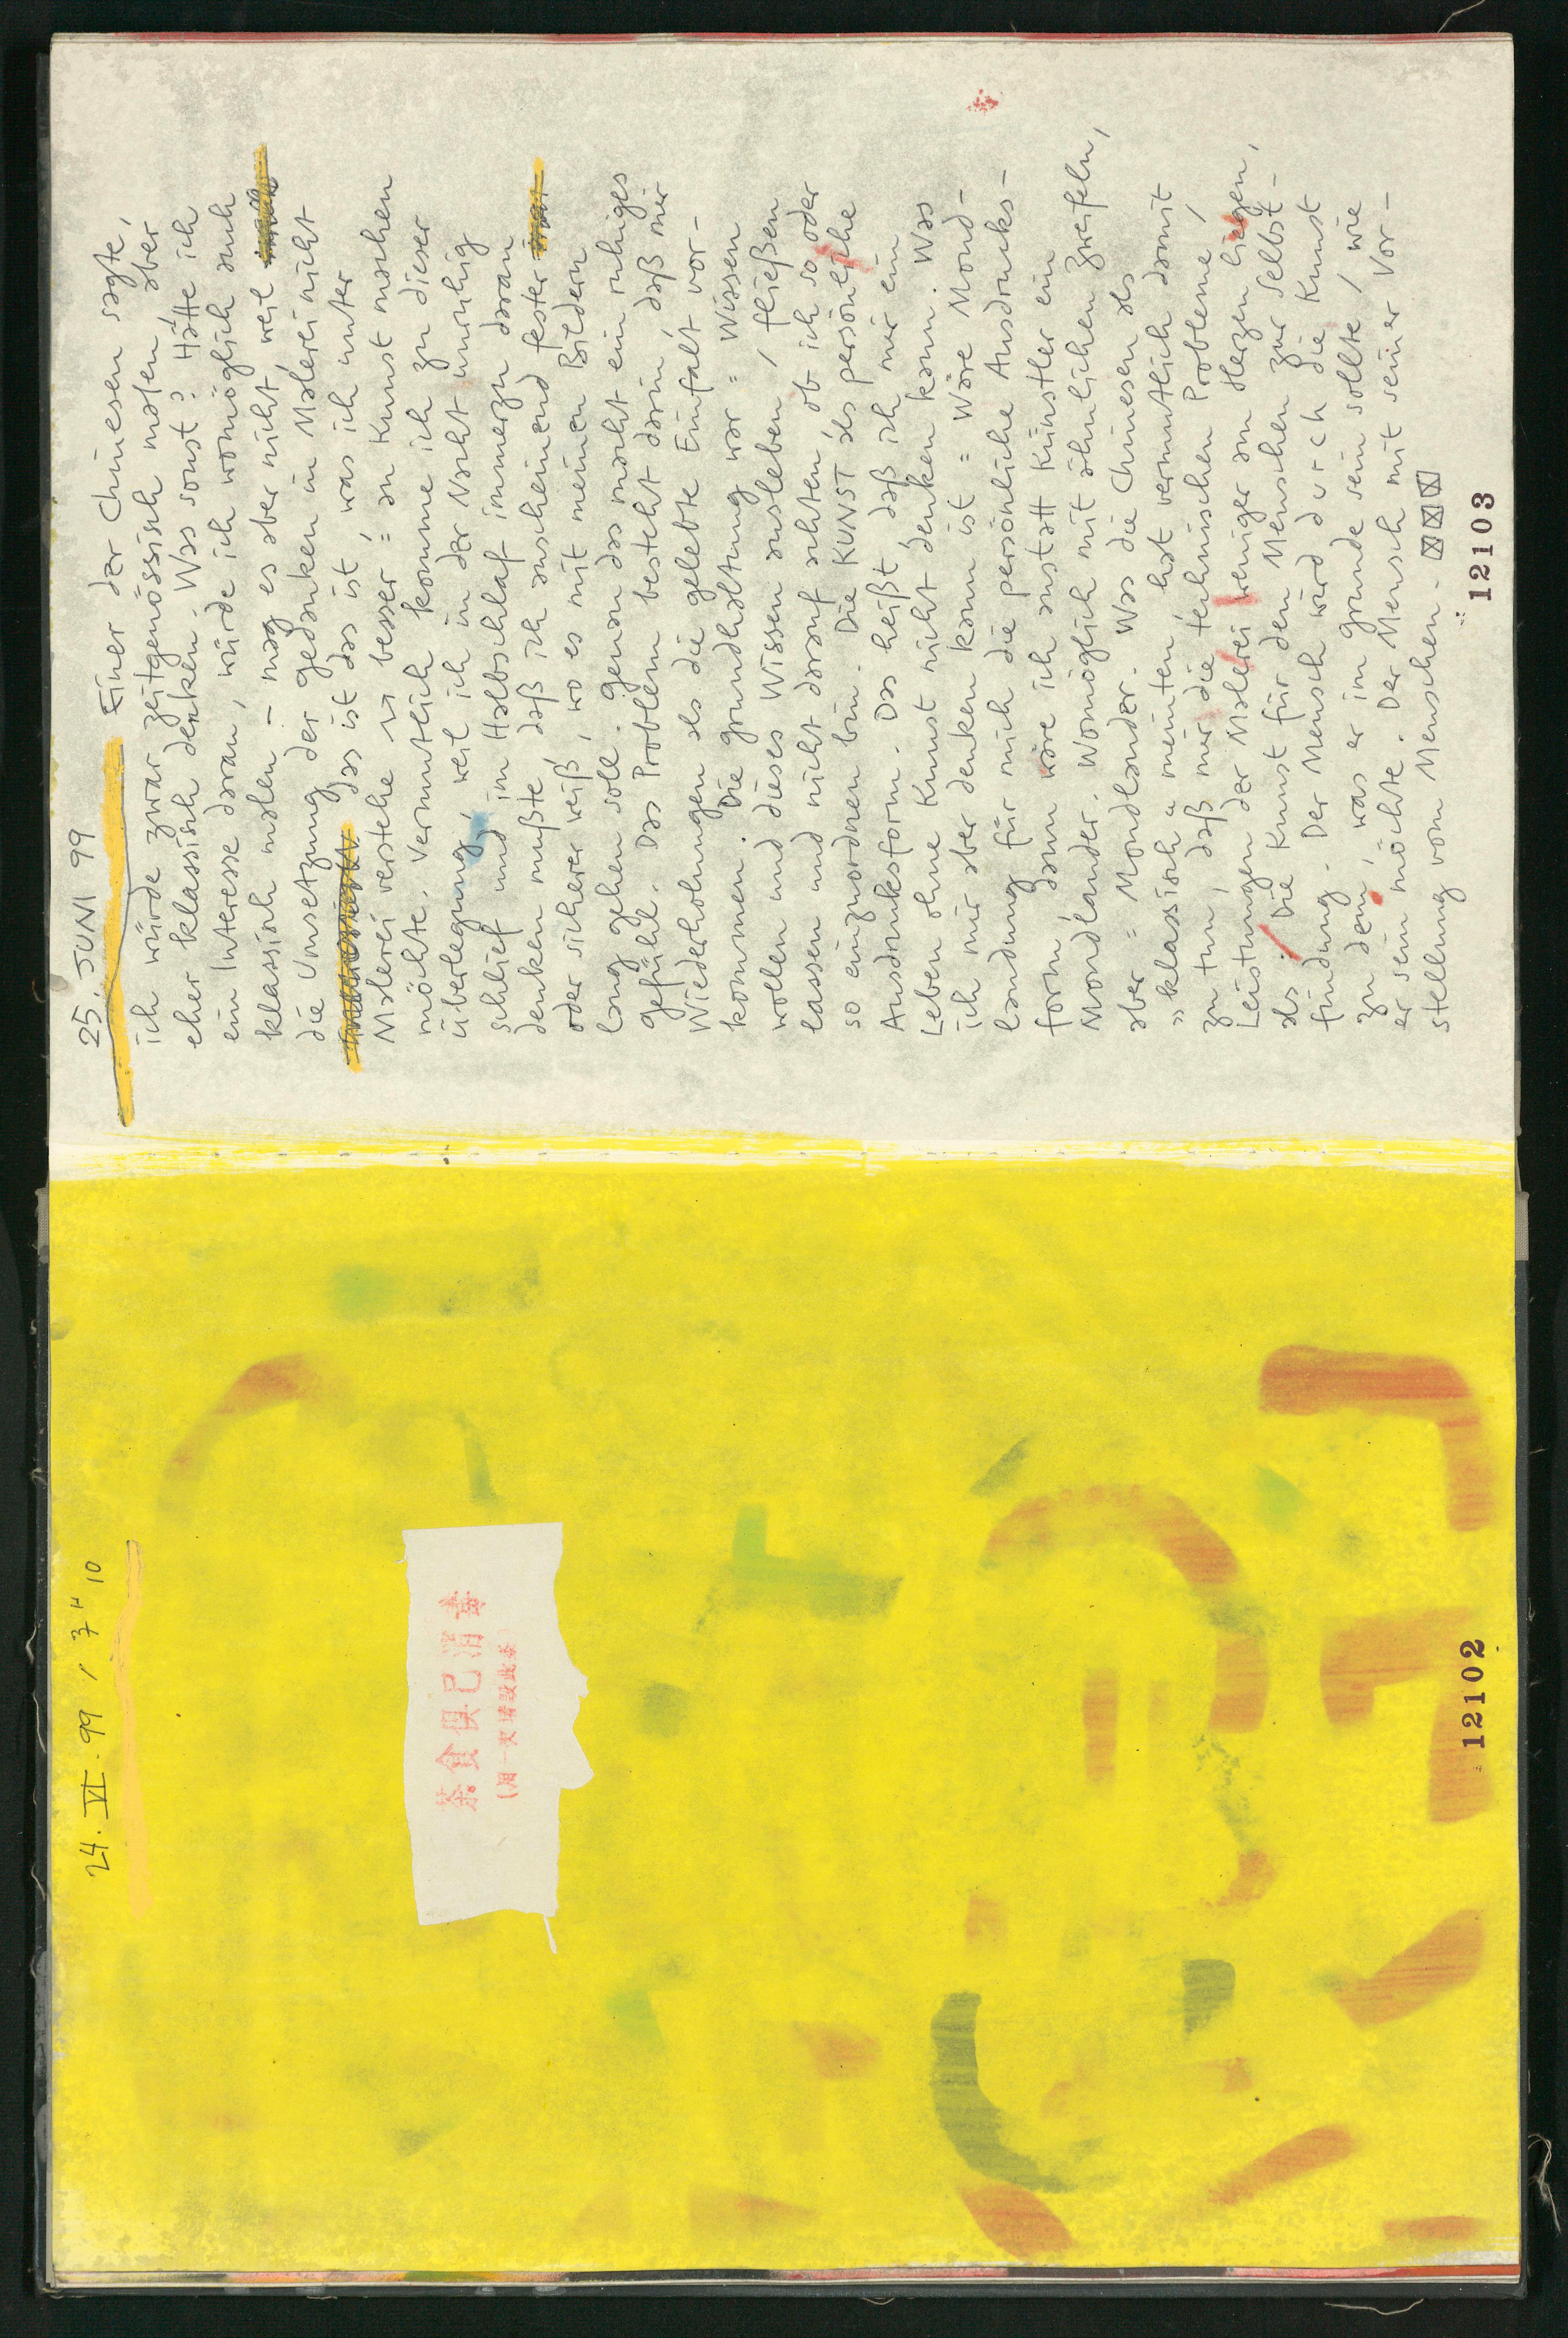 24. VI. 99 / 3" 10
茶食俱已消毒
(用一次請毀此套)
12102
25. JUNI 99 Einer der Chinesen sagte,
ich würde zwar zeitgenössisch malen, aber
eher klassisch denken. Was sonst? Hätte ich
ein Interesse daran, würde ich womöglich auch
klassisch malen – mag es aber nicht, weil
die Umsetzung der Gedanken in Malerei nicht
das ist das ist, was ich unter
Malerei verstehe besser = an Kunst machen
möchte. Vermutlich komme ich zu dieser
Überlegung, weil ich in der Nacht unruhig
schlief und im Halbschlaf immerzu daran
denken mußte, daß ich anscheinend fester
oder sicherer weiß, wo es mit meinen Bildern
lang gehen soll. Genau das macht ein ruhiges
Gefühl. Das Problem besteht darin, daß mir
Wiederholungen als die gelebte Einfalt vor-
kommen. Die Grundhaltung war = Wissen
wollen und dieses Wissen ausleben / fließen
lassen und nicht darauf achten, ob ich so oder
so einzuordnen bin. Die KUNST als persönliche
Ausdrucksform. Das heißt, daß ich mir ein
Leben ohne Kunst nicht denken kann. Was
ich mir aber denken kann ist = Wäre Mond-
landung für mich die persönliche Ausdrucks-
form, dann wäre ich anstatt Künstler ein
Mondlander. Womöglich mit ähnlichen Zweifeln,
aber = Mondlander. Was die Chinesen als
„klassisch" meinten, hat vermutlich damit
zu tun, daß mir die technischen Probleme /
Leistungen der Malerei weniger am Herzen liegen,
als: Die Kunst für den Menschen zur Selbst-
findung. Der Mensch wird durch die Kunst
zu dem, was er im Grunde sein sollte / wie
er sein möchte. Der Mensch mit seiner Vor-
stellung vom Menschen.
12103